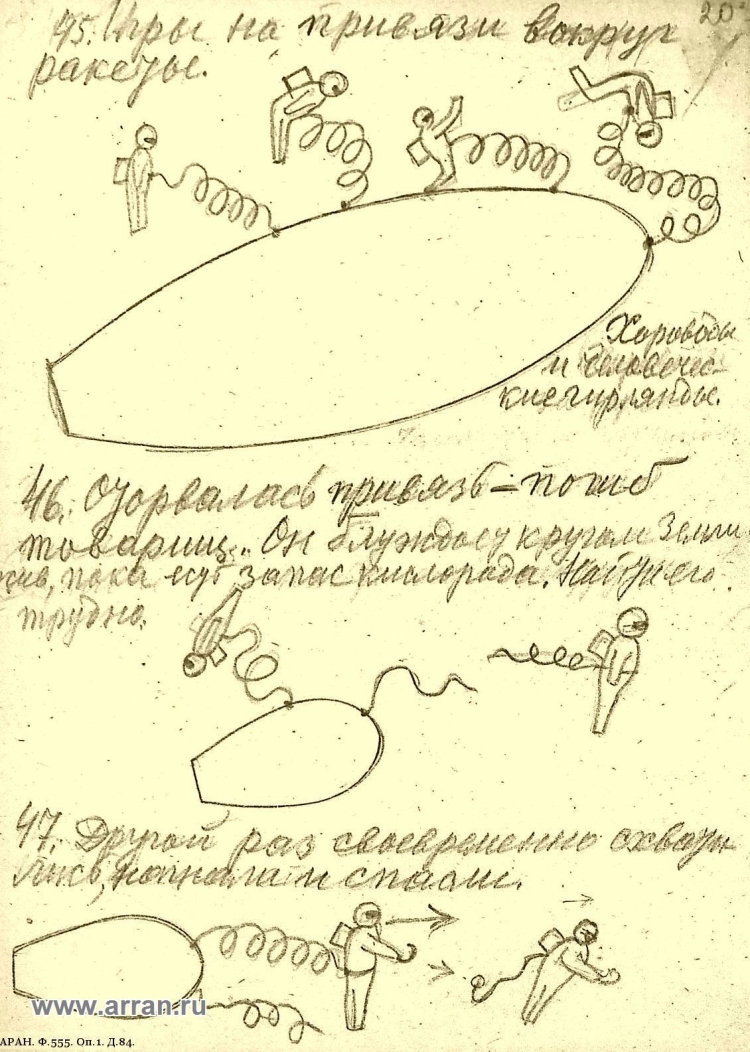 20
45. Игры на привязи вокруг
ракеты.
Хороводы
и человечес-
кие гирлянды.
46. Оторвалась привязь – погиб
товарищ.. Он блуждает кругом Земли
жив, пока есть запас кислорода. Найти его
трудно.
47. Другой раз своевременно схвати-
лись, нагнали и спасли.
www.arran.ru
АРАН. Ф.555. Оп.1. Д.84.